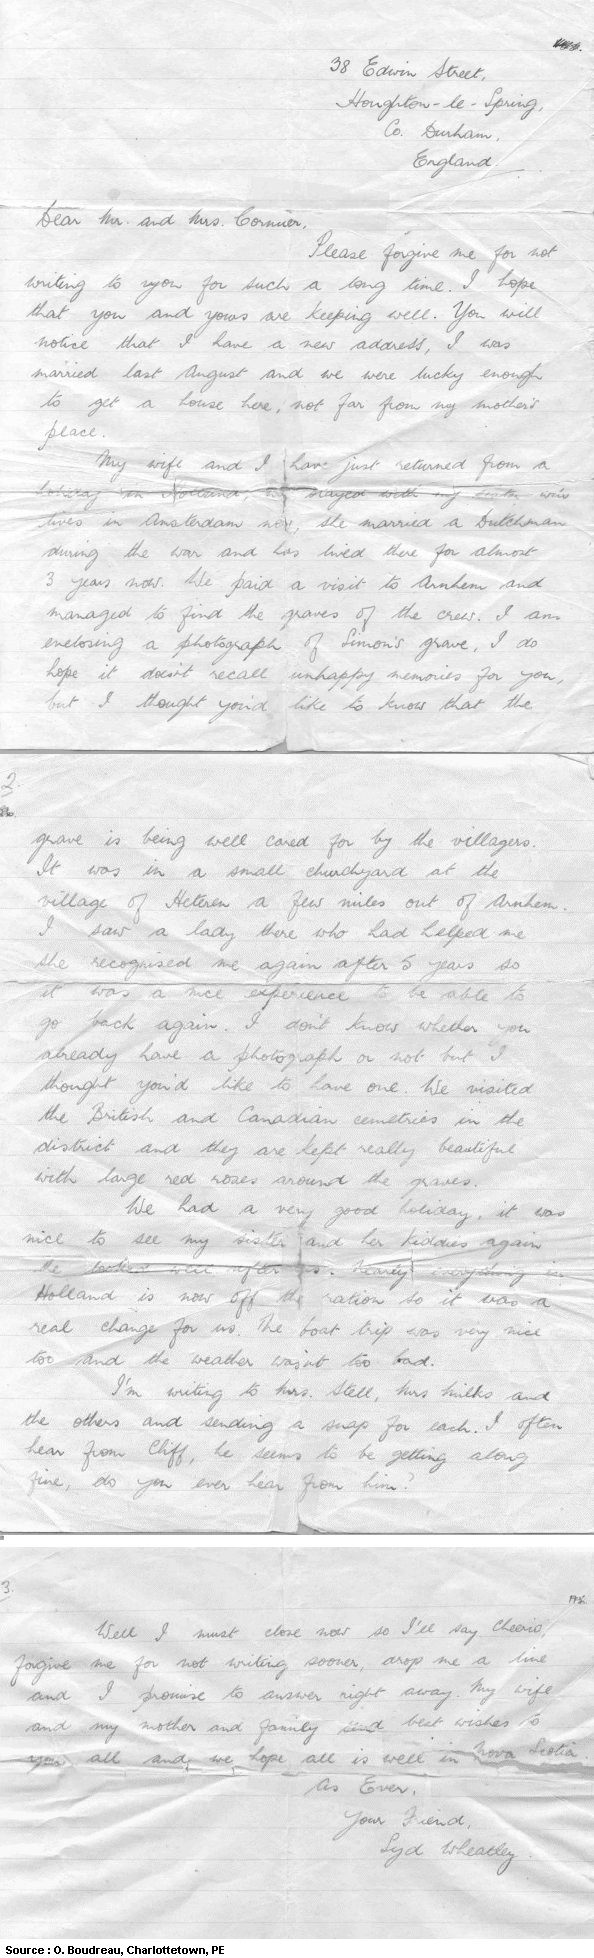 38 Edwin Street,
Houghton-le-Spring,
Co. Durham,
England.
Dear Mr. and Mrs. Cormier,
Please forgive me for not
writing to you for such a long time. I hope
that you and yours are keeping well. You will
notice that I have a new address, I was
married last August and we were lucky enough
to get a house here, not far from my mother's
place.
My wife and I have just returned from a
holiday in Holland, we stayed with my sister who
lives in Amsterdam now, she married a Dutchman
during the war and has lived there for almost
3 years now. We paid a visit to Arnhem and
managed to find the graves of the crew. I am
enclosing a photograph of Simon's grave, I do
hope it doesn't recall unhappy memories for you,
but I thought you'd like to know that the
2.
grave is being well cared for by the villagers.
It was in a small churchyard at the
village of Heteren a few miles out of Arnhem.
I saw a lady there who had helped me
she recognised me again after 5 years so
it was a nice experience to be able to
go back again. I don't know whether you
already have a photograph or not but I
thought you'd like to have one. We visited
the British and Canadian cemetries in the
district and they are kept really beautiful
with large red roses around the graves.
We had a very good holiday, it was
nice to see my sister and her kiddies again
looked well after us. Nearly everything in
Holland is now off the ration so it was a
real change for us. The boat trip was very nice
too and the weather wasn't too bad.
I'm writing to Mrs. Stell, Mrs Milks and
the others and sending a snap for each. I often
hear from Cliff, he seems to be getting along
fine, do you ever hear from him?
3.
Well I must close now so I'll say Cheerio,
forgive me for not writing sooner, drop me a line
and I promise to answer right away. My wife
and my mother and family send best wishes to
you all and we hope all is well in Nova Scotia.
As Ever,
Your Friend,
Syd Wheatley.
Source : O. Boudreau, Charlottetown, PE